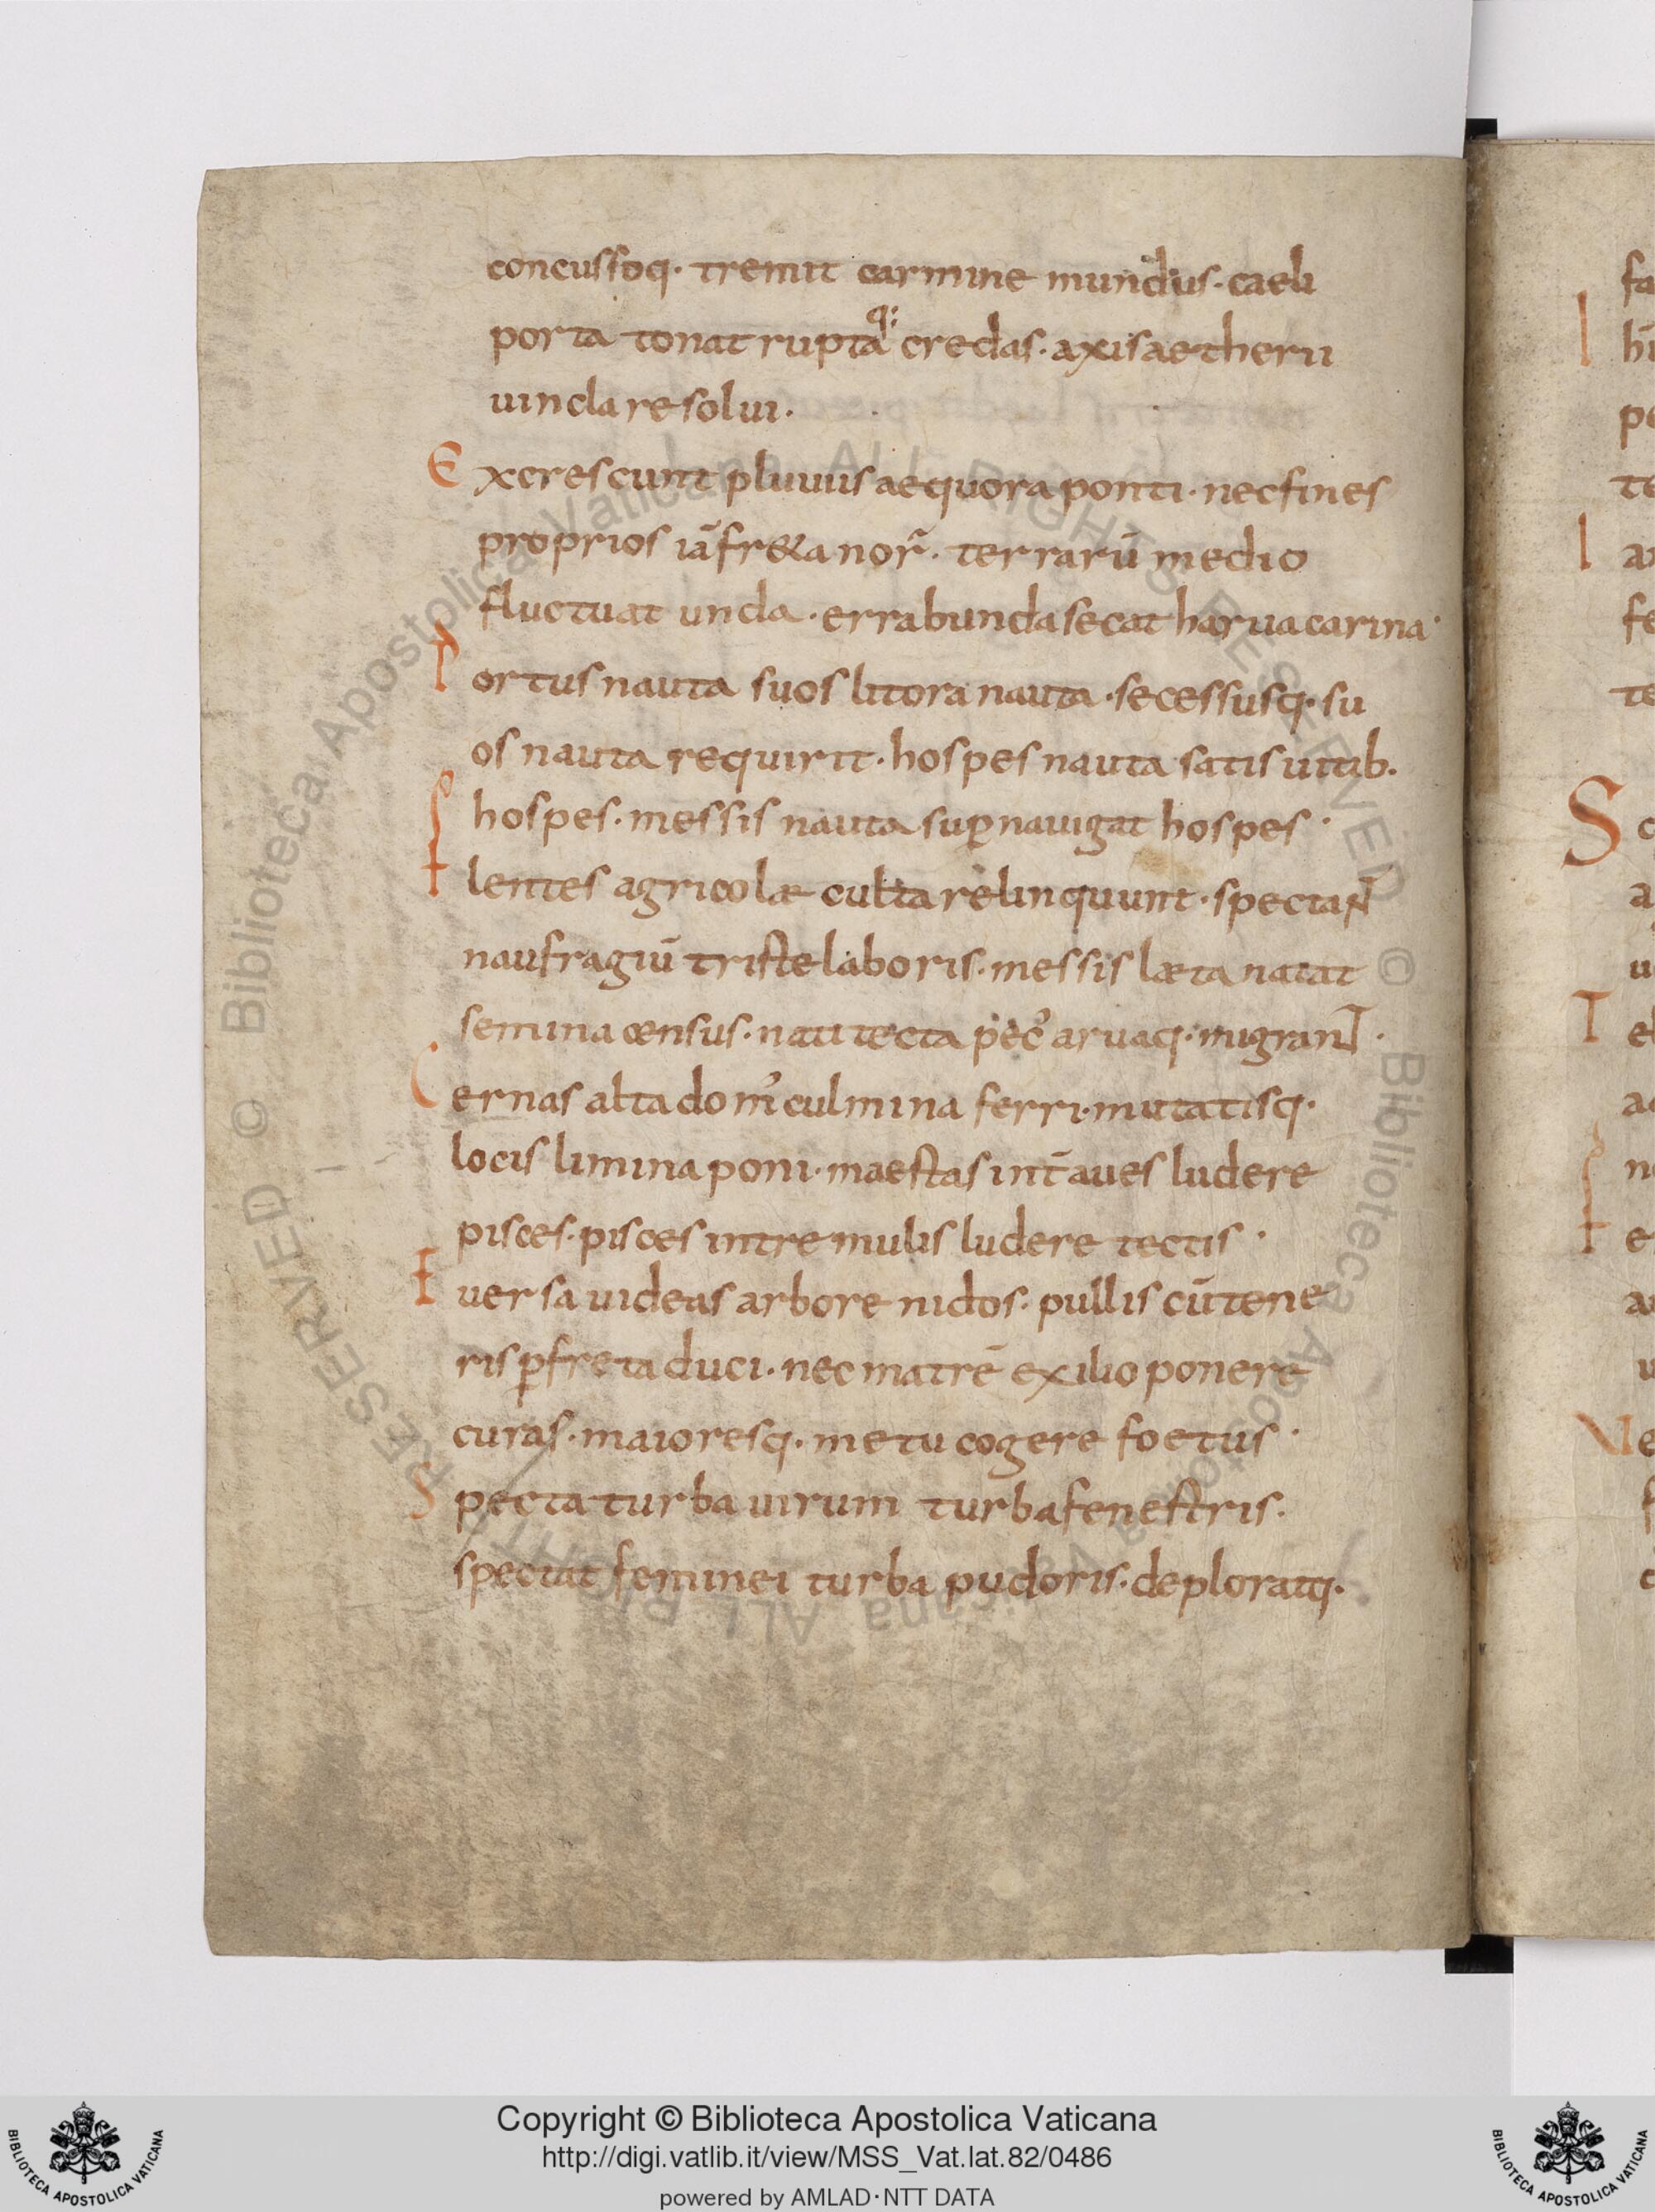 concussoq· tremit carmine mundus · caeli
porta tonat ruptaq; credas · axis aetherii
uincla resolui ·
Excrescunt pluuiis aequora ponti · nec fines
proprios iā fr&a nor̄ · terrarū medio
fluctuat unda · errabunda secat harua carina ·
Portus nauta suos litora nauta · secessusq· su
os nauta requirit · hospes nauta satis uitib·
hospes · messis nauta suꝑ nauigat hospes ·
Flentes agricolæ culta relinquunt · spectant
naufragiū triste laboris · messis læta natat
semina census · nati tecta pec' aruaq· migrant ·
Cernas alta dom' culmina ferri · mutatisq·
locis limina poni · maestas int̄ aues ludere
pisces · pisces intremulis ludere tectis ·
Euersa uideas arbore nidos · pullis cū tene
ris ꝑ freta duci · nec matrē exilio ponere
curas · maioresq· metu cogere foetus ·
Specta turba uirum turba fenestris ·
spectat feminei turba pudoris · deploratq·
Copyright © Biblioteca Apostolica Vaticana
http://digi.vatlib.it/view/MSS_Vat.lat.82/0486
powered by AMLAD·NTT DATA
BIBLIOTECA APOSTOLICA VATICANA
BIBLIOTECA APOSTOLICA VATICANA